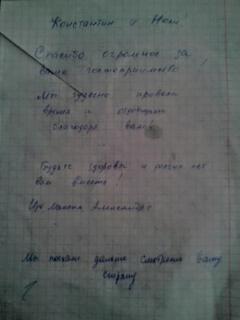 Константин и
Спасибо огромное за
ваше гостеприимство!
Мы чудесно провели
время и отдохнули
благодаря вам
Будьте здоровы и
вам вместе!
Мы поехали дальше смотреть вашу
страну